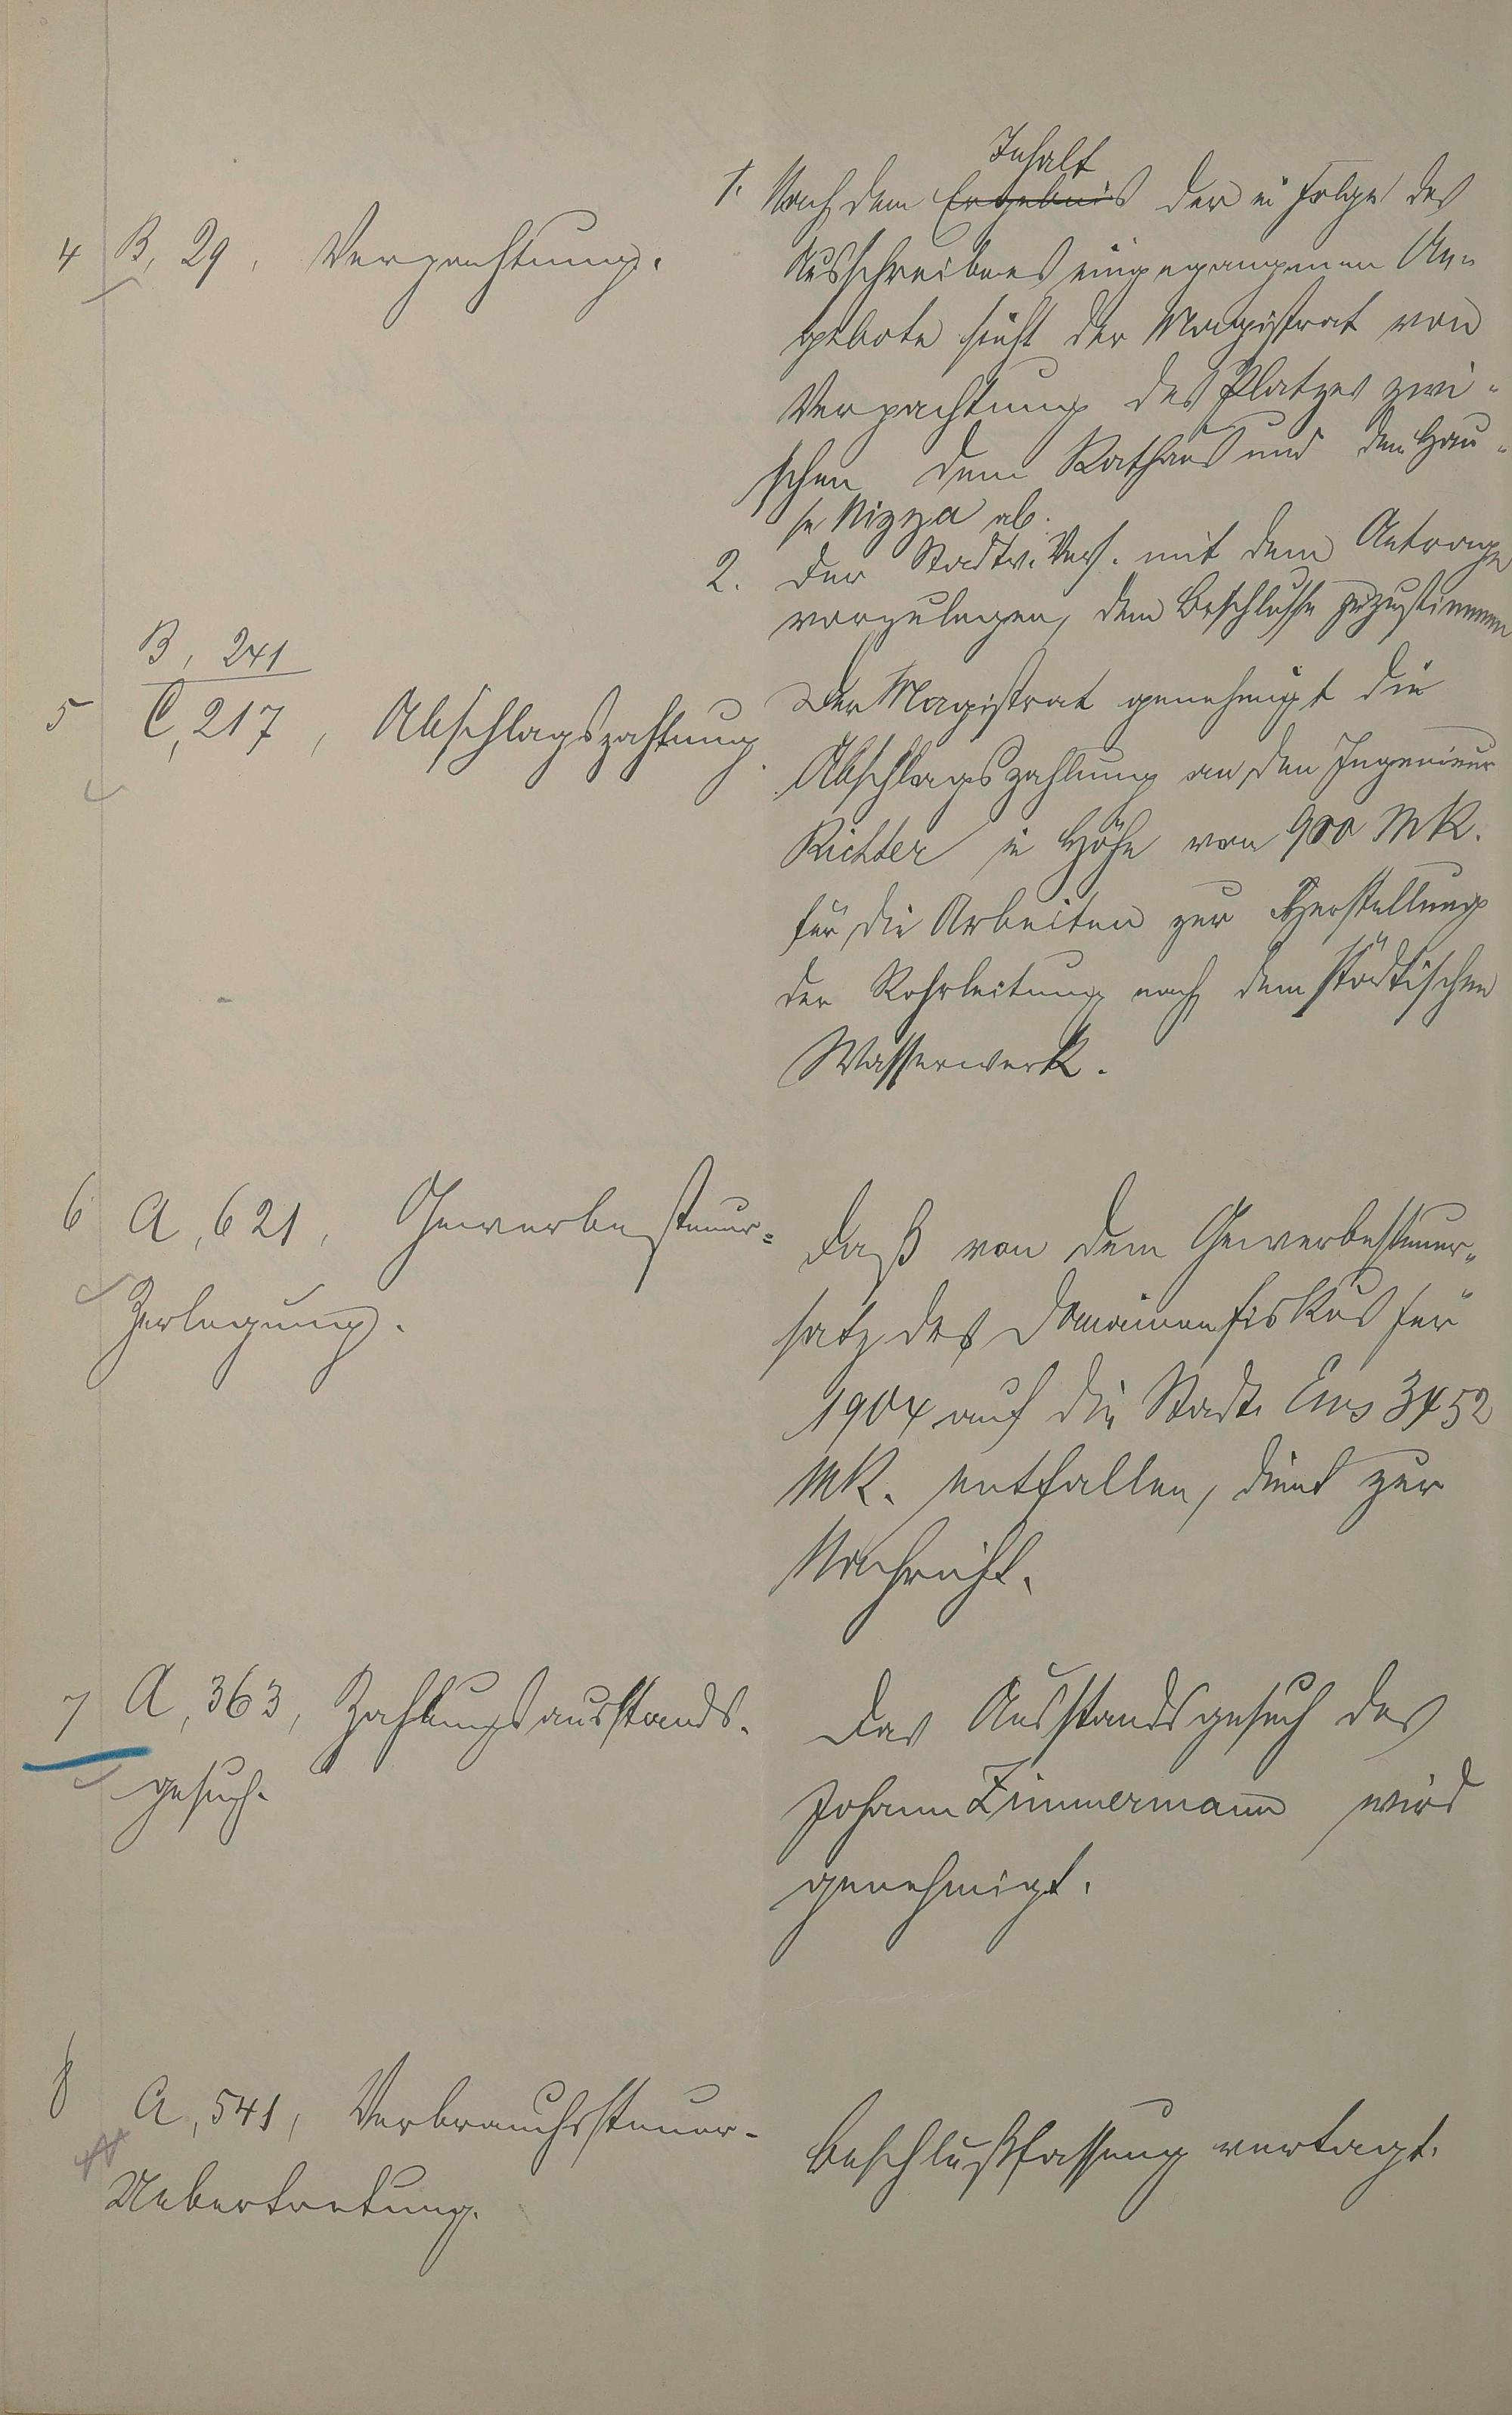 4 B, 29, Verpachtung.
1. Nach dem Ergebnis Inhalt der in Folge des
Ausschreibens eingegangenen An-
gebote sieht der Magistrat von
Verpachtung des Platzes zwi-
schen dem Rathaus und dem Hau-
se Nizza ab.
2. Der Stadtv. Vers. mit dem Antrage
vorzulegen, dem Beschlusse zuzustimmen
B, 241
5 C, 217, Abschlagszahlung.
Der Magistrat genehmigt die
Abschlagszahlung an den Ingenieur
Richter in Höhe von 900 Mk.
für die Arbeiten zur Herstellung
der Rohrleitung nach dem städtischen
Wasserwerk.
6 A, 621, Gewerbesteuer-
Zerlegung.
Daß von dem Gewerbesteuer-
satz des Domainenfiskus für
1904 auf die Stadt Ems 3452
Mk. entfallen, dient zur
Nachricht.
7 A, 363, Zahlungsausstands-
gesuch.
Das Ausstandsgesuch des
Johann Zimmermann wird
genehmigt.
8 A, 541, Verbrauchssteuer-
Uebertretung.
Beschlußfassung vertagt.